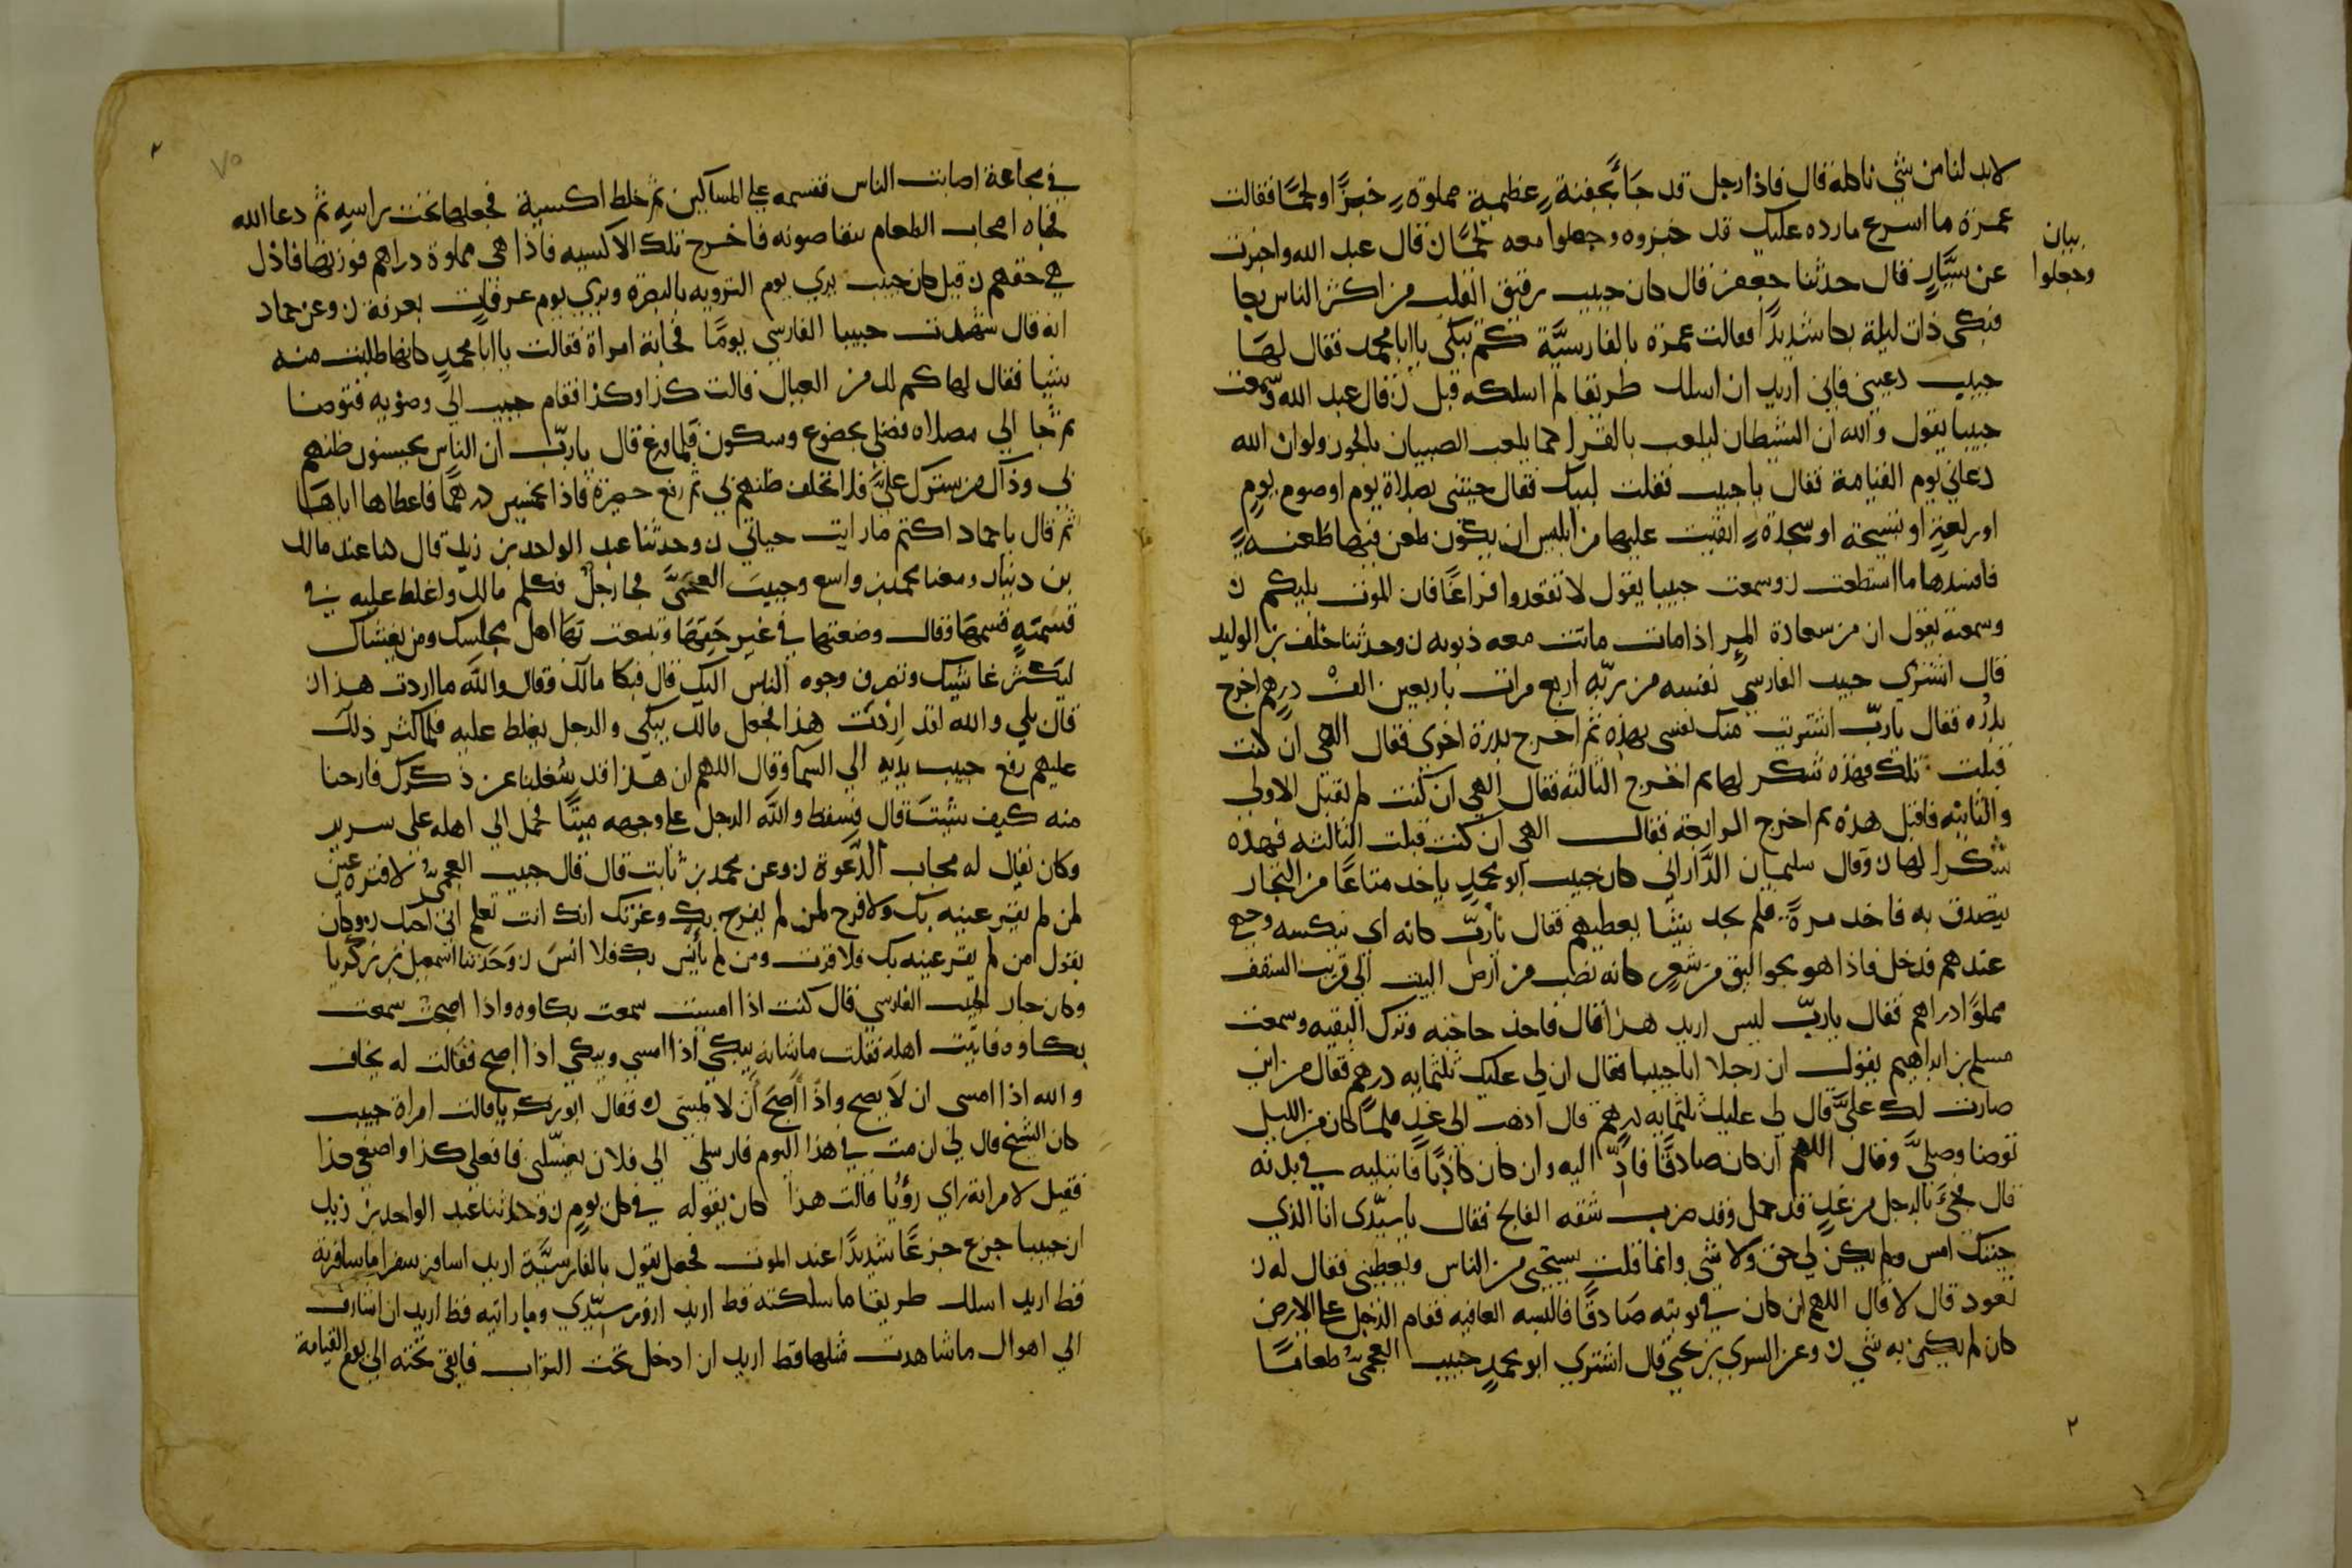 لابد لنا من شي ناكله قال فاذا رجل قد جاء بجفنة عظيمة مملوة خبزا ولحما فقالت
عمرة ما اسرع ما رده عليك قد خبزوه وجعلوا معه لحما ن قال عبد الله واخبرت
بيان
وجعلوا
عن سيار قال حدثنا جعفر قال كان حبيب رقيق القلب من اكثر الناس بكا
فبكى ذات ليلة بكا شديدا فقالت عمرة بالفارسية كم تبكي يا ابا محمد فقال لها
حبيب دعيني فاني اريد ان اسلك طريقا لم اسلكه قبل ن قال عبد الله وسمعت
حبيبا يقول والله ان الشيطان ليلعب بالقرا كما يلعب الصبيان بالجوز ولو ان الله
دعاني يوم القيامة فقال يا حبيب فقلت لبيك فقال جيتني بصلاة يوم او صوم يوم
او ركعة او تسبيحة او سجدة اتقيت عليها من ابليس ان يكون طعن فيها طعنة
فافسدها ما استطعت ن وسمعت حبيبا يقول لا تقعدوا فراغا فان الموت يليكم ن
وسمعته يقول ان من سعادة المر اذا مات ماتت معه ذنوبه ن وحدثنا خلف بن الوليد
قال اشترى حبيب الفارسي نفسه من ربه اربع مرات باربعين الف درهم اخرج
بدره فقال يا رب اشتريت منك نفسي بهذه ثم اخرج بدرة اخرى فقال الهي ان كنت
قبلت تلك فهذه شكر لها ثم اخرج الثالثه فقال الهي ان كنت لم تقبل الاولى
والثانيه فاقبل هذه ثم اخرج الرابعة فقال الهي ان كنت قبلت الثالثه فهذه
شكرا لها ن وقال سليمان الداراني كان حبيب ابو محمد ياخد متاعا من التجار
يتصدق به فاخد مرة فلم يجد شيا يعطيهم فقال يا رب كانه اي ينكسه وجهي
عندهم فدخل فاذا هو بجوالق من شعر كانه نصب من ارض البيت الى قريب السقف
مملوا دراهم فقال يا رب ليس اريد هذا قال فاخذ حاجته وترك البقيه وسمعت
مسلم بن ابراهيم يقول ان رجلا اتا حبيبا فقال ان لي عليك ثلثمايه درهم فقال من اين
صارت لك علي قال لي عليك ثلثمايه درهم قال اذهب الى غد فلما كان من الليل
توضا وصلى وقال اللهم ان كان صادقا فاد اليه وان كان كاذبا فابتليه في بدنه
قال فجئ بالرجل من غد قد حمل وقد ضرب شقه الفالج فقال يا سيدى انا الذي
جيتك امس ولم يكن لي حق ولا شي وانما قلت يستحي من الناس ويعطيني فقال له ن
تعود قال لا قال اللهم ان كان في توبته صادقا فالبسه العافيه فقام الرجل على الارض
كان لم يكن به شي ن وعن السري بن يحيى قال اشترى ابو محمد حبيب العجمي طعاما
٢
٢
٧٥
في مجاعة اصابت الناس فقسمه على المساكين ثم خاط اكسية فجعلها تحت راسه ثم دعا الله
فجاه اصحاب الطعام يتقاضونه فاخرج تلك الاكسيه فاذا هي مملوة دراهم فوزنها فاذا
هي حقهم ن قيل كان حبيب يرى يوم الترويه بالبصرة ويرى يوم عرفات بعرفة ن وعن حماد
انه قال شهدت حبيبا الفارسي يوما فجاته امراة فقالت يا ابا محمد كانها طلبت منه
شيا فقال لها كم لك من العيال قالت كذا وكذا فقام حبيب الى وضويه فتوضا
ثم جا الى مصلاه فصلى بخضوع وسكون فلما فرغ قال يا رب ان الناس يحسنون ظنهم
بي وذاك من سترك علي فلا تخلف ظنهم بي ثم رفع حصيره فاذا بخمسين درهما فاعطاها اياها
ثم قال يا حماد اكتم ما رايت حياتي ن وحدثنا عبد الواحد بن زيد قال كنا عند مالك
بن دينار ومعنا محمد بن واسع وحبيب العجمي فجا رجل فكلم مالك واغلظ عليه في
قسمة قسمها وقال وضعتها في غير حقها وتبعت بها اهل مجلسك ومن يغشاك
ليكثر غاشيك وتصرف وجوه الناس اليك قال فبكا مالك وقال والله ما اردت هذا ن
قال بلى والله لقد اردت هذا فجعل مالك يبكي والرجل يغلظ عليه فلما كثر ذلك
عليهم رفع حبيب يديه الى السما وقال اللهم ان هذا قد شغلنا عن ذكرك فارحنا
منه كيف شيت قال فسقط والله الرجل على وجهه ميتا فحمل الى اهله على سرير
وكان يقال له مجاب الدعوة ن وعن محمد بن ثابت قال قال حبيب العجمي لا قرة عين
لمن لم يقر عينيه بك ولا فرح لمن لم يفرح بك وعزتك انك انت تعلم اني احبك ن وكان
يقول من لم يقر عينه بك فلا قرت ومن لم يأنس بك فلا انس ن وحدثنا اسمعيل بن زكريا
وكان جار لحبيب الفارسي قال كنت اذا امسيت سمعت بكاوه واذا اصبحت سمعت
بكاوه فاتيت اهله فقلت ما شانه يبكي اذا امسى ويبكي اذا اصبح فقالت له يخاف
والله اذا امسى ان لا يصبح واذا اصبح ان لا يمسي ن فقال ابو زكريا قالت امراة حبيب
كان الشيخ قال لي ان مت في هذا اليوم فارسلي الى فلان يغسلني فافعلي كذا واصنعي كذا
فقيل لامراته راى رؤيا قالت هذا كان يقوله في كل يوم ن وحدثنا عبد الواحد بن زيد
ان حبيبا جزع جزعا شديدا عند الموت فجعل يقول بالفارسية اريد اسافر سفرا ما سافرته
قط اريد اسلك طريقا ما سلكته قط اريد ازور سيدي وما رايته قط اريد ان اشارف
الى اهوال ما شاهدت مثلها قط اريد ان ادخل تحت التراب فابقى تحته الى يوم القيامة